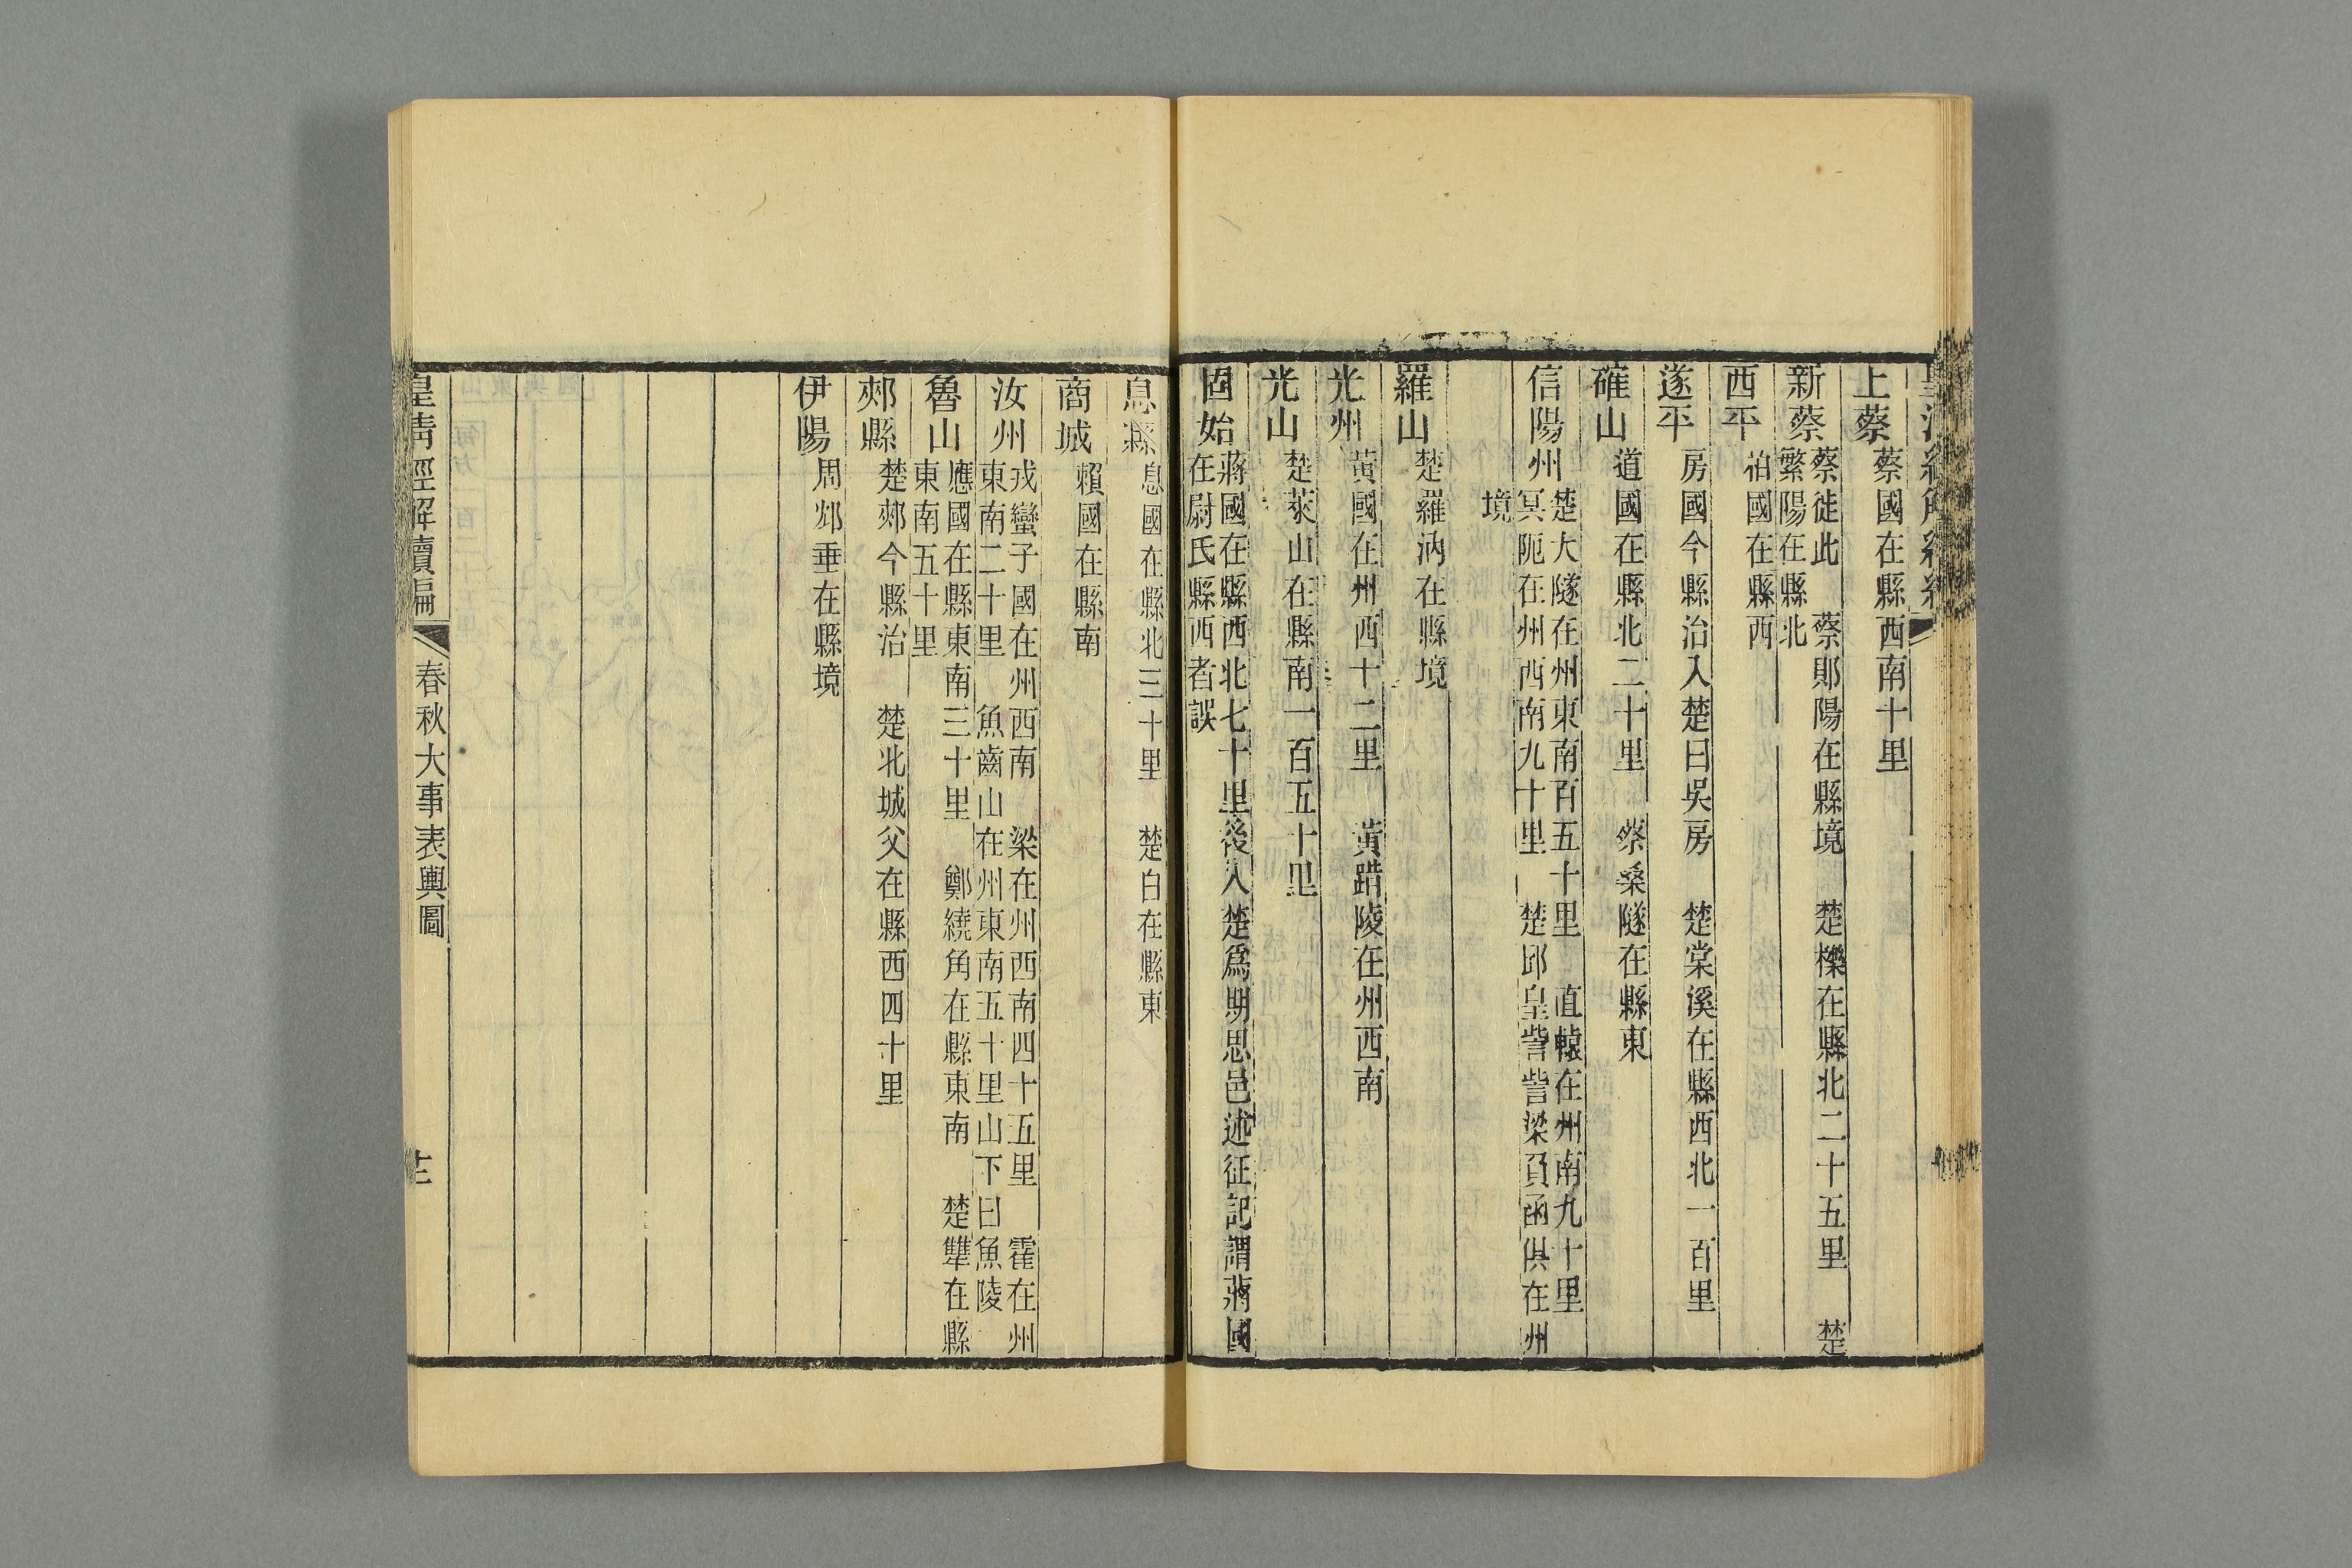 上蔡 蔡國在縣西南十里
新蔡 蔡徙此 蔡郹陽在縣境 楚櫟在縣北二十五里 楚
繁陽在縣北
西平 柏國在縣西
遂平 房國今縣治入楚曰吳房 楚棠溪在縣西北一百里
確山 道國在縣北二十里 蔡桑隧在縣東
信陽州 楚大隧在州東南百五十里 直轅在州南九十里
冥阨在州西南九十里 楚郧皇訾訾梁負函俱在州
境
羅山 楚羅汭在縣境
光州 黃國在州西十二里 黃踖陵在州西南
光山 楚萊山在縣南一百五十里
固始 蔣國在縣西北七十里後入楚爲期思邑述征記謂蔣國
在尉氏縣西者誤
息縣 息國在縣北三十里 楚白在縣東
商城 賴國在縣南
汝州 戎蠻子國在州西南 梁在州西南四十五里 霍在州
東南二十里 魚齒山在州東南五十里山下曰魚陵
魯山 應國在縣東南三十里 鄭繞角在縣東南 楚犨在縣
東南五十里
郟縣 楚郟今縣治 楚北城父在縣西四十里
伊陽 周邥垂在縣境
皇清經解續編 春秋大事表輿圖